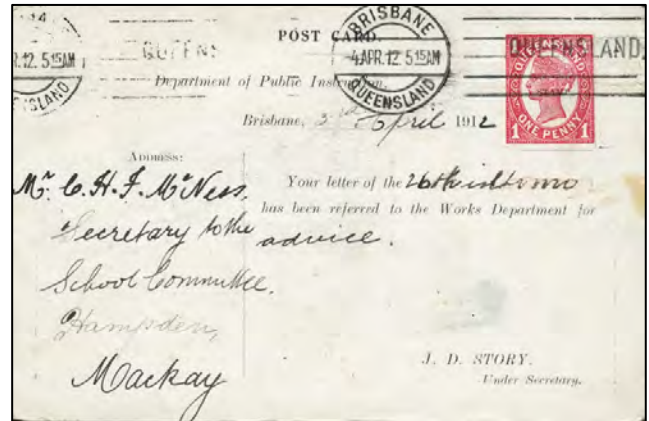 POST CARD.
R.12. 5 15AM
BRISBANE
4 APR.12 5 15AM
QUEENSLAND
QUEENSLAND
QUEENSLAND
ONE PENNY
1 1
Department of Public Instruction.
Brisbane, 3rd April 1912
Address:
Mr. C. H. F. McNess,
Secretary to the
School Committee.
Hampden,
Mackay
Your letter of the 26th
has been referred to the Works Department for
advice.
J. D. STORY.
Under Secretary.